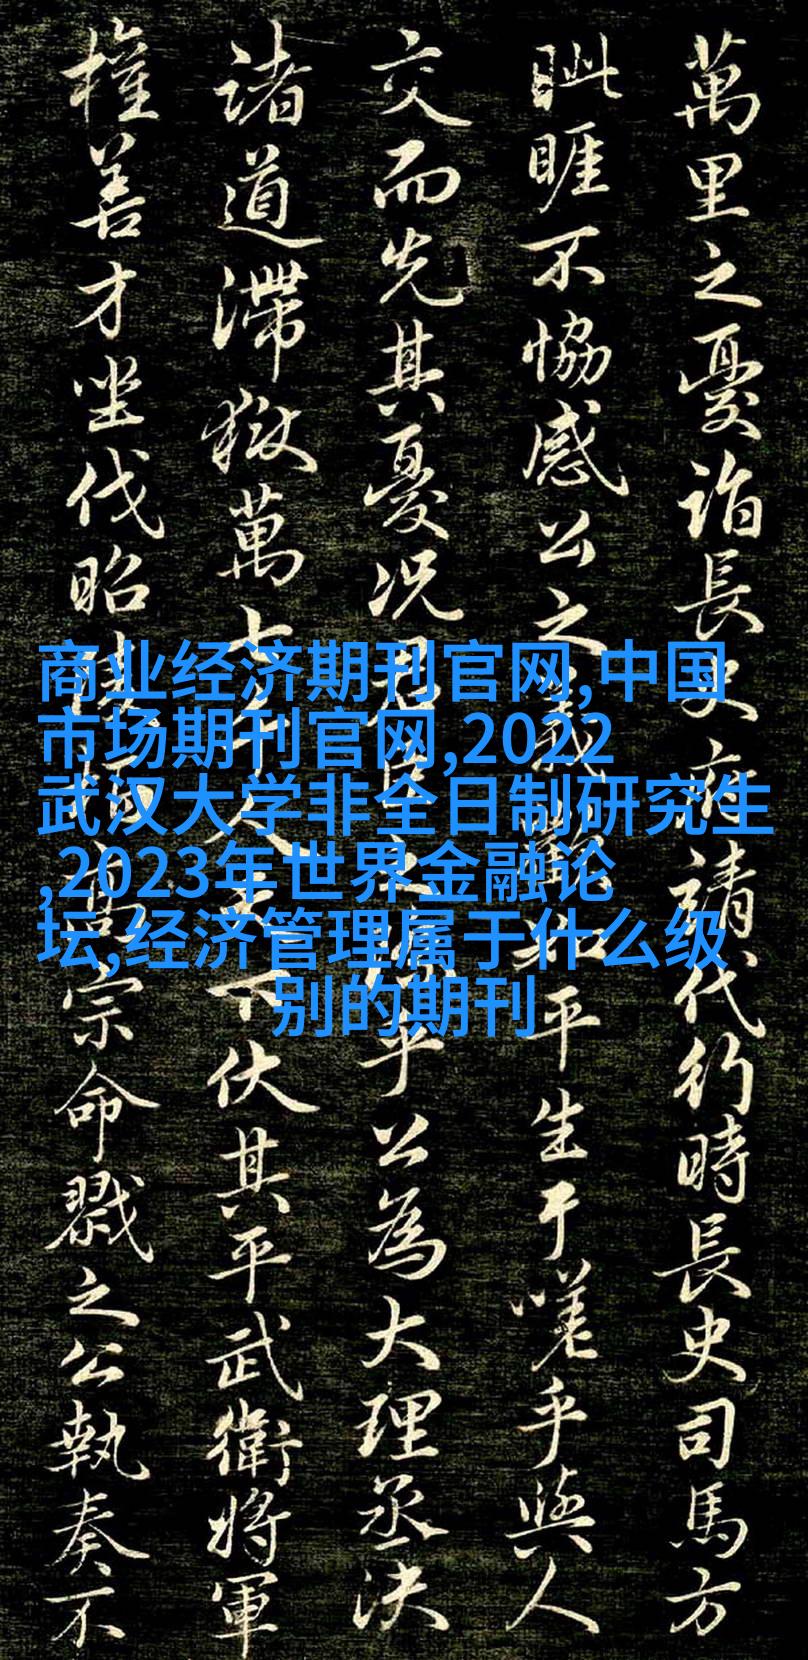 萬里之憂詣長史病請代行時長史司馬方
眦睚不協感公之義歡如平生于嗟乎與人
交而先其憂況君臣之際乎公為大理丞決
諸道滯獄萬七千人天下伏其平武衛將軍
權善才坐伐昭陵柏高宗命戮之公執奏不
商业经济期刊官网,中国
市场期刊官网,2022
武汉大学非全日制研究生
,2023年世界金融论
坛,经济管理属于什么级
别的期刊